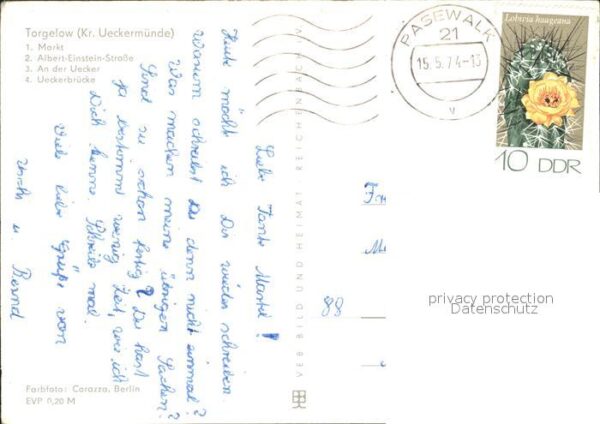 Torgelow (Kr. Ueckermünde)
1. Markt
2. Albert-Einstein-Straße
3. An der Uecker
4. Ueckerbrücke
Liebe Tante
Heute möcht ich Dir wieder schreiben.
Warum schreibst Du denn nicht einmal?
Was machen meine übrigen Sachen?
Sind sie schon fertig? Du hast
ja bestimmt wenig Zeit, wie ich
Dich kenne. Schreib mal.
Viele liebe Grüße von
u Bernd
Farbfoto: Carazzo, Berlin
EVP 0,20 M
VEB BILD UND HEIMAT · REICHENBACH i. V.
PASEWALK
21
15.5.74-13
v
Lobivia haageana
10 DDR
88
privacy protection
Datenschutz